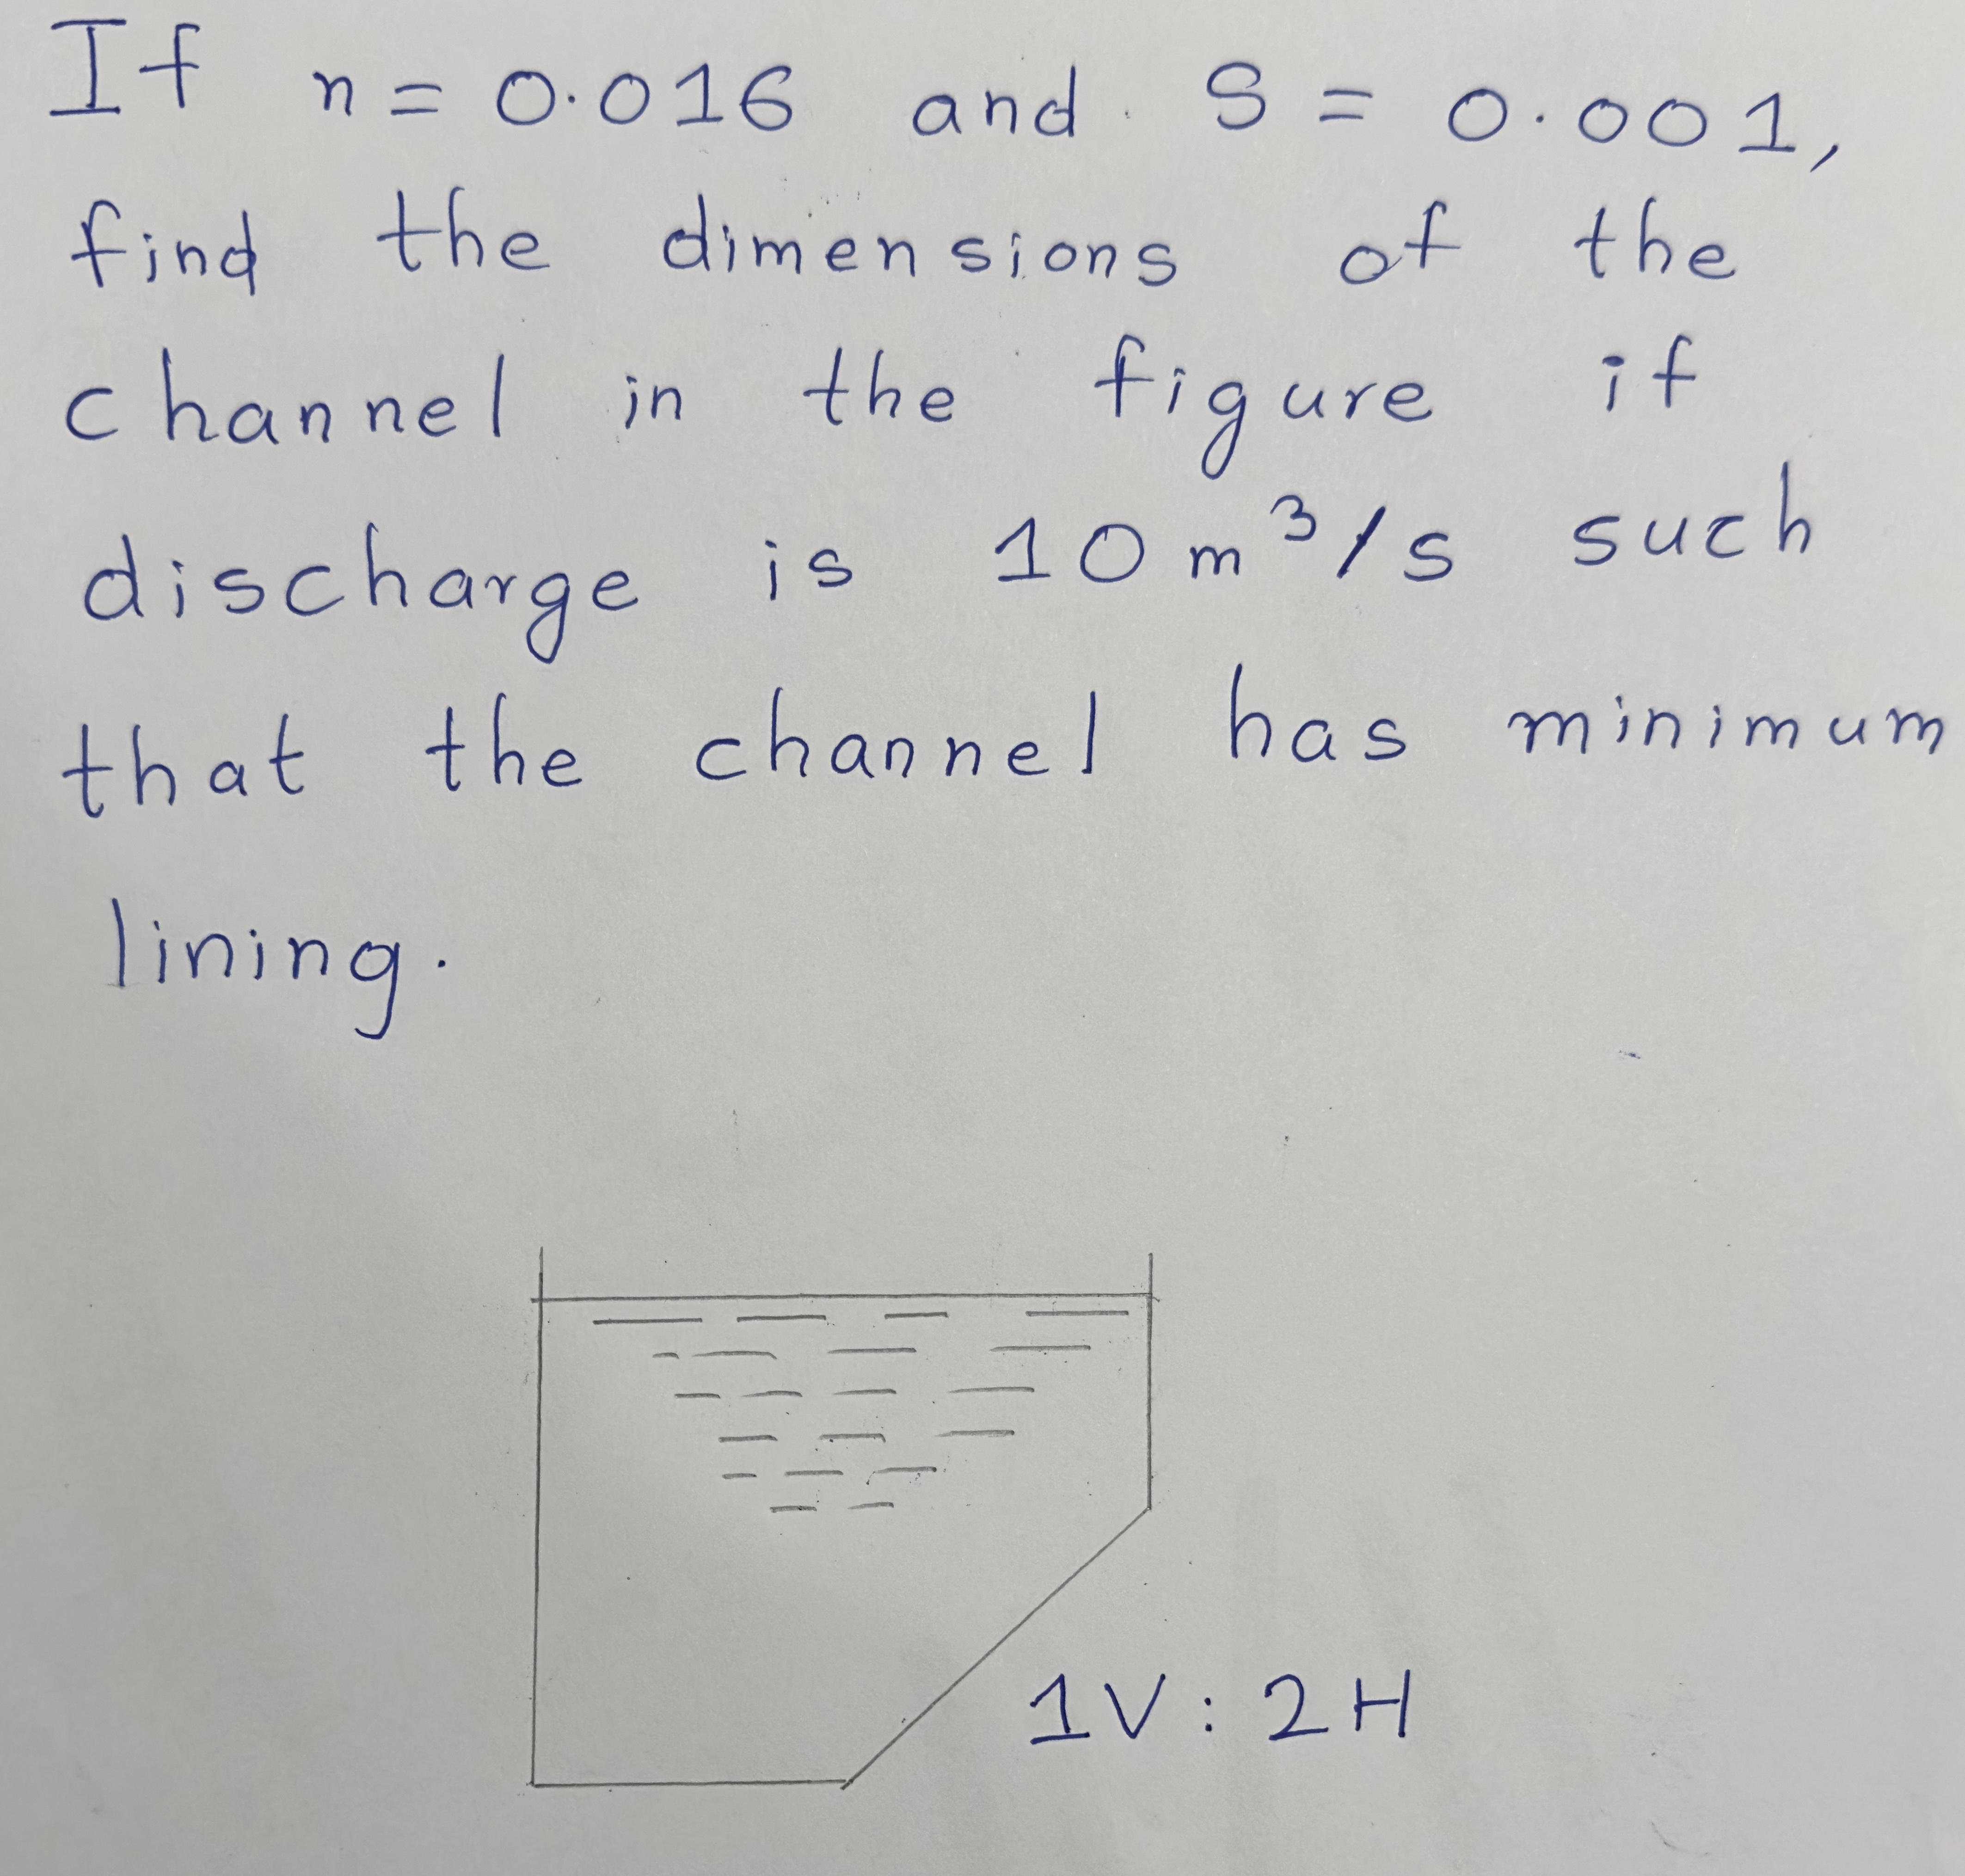 If n = 0.016 and S = 0.001,
find the dimensions of the
channel in the figure if
discharge is 10 m³/s such
that the channel has minimum
lining.
1V : 2H